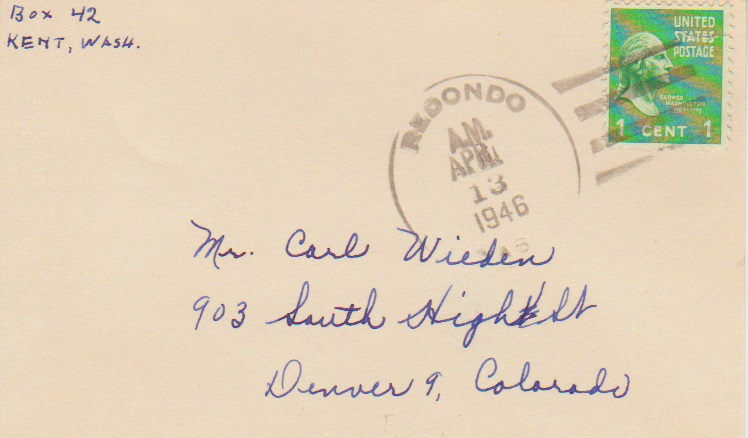 Box 42
KENT, WASH.
UNITED
STATES
POSTAGE
GEORGE
WASHINGTON
1 CENT 1
REDONDO
A.M.
APR
13
1946
Mr. Carl Wieden
903 South High St
Denver 9, Colorado